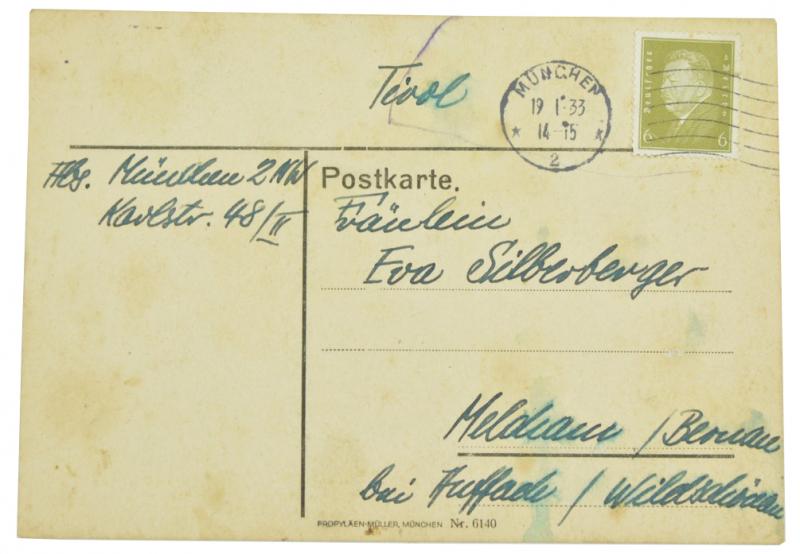 Tirol
MÜNCHEN
19 1 33
14-15
* *
2
Deutsches Reich
6 6
Abs. München 2 NW
Karlstr. 48/II
Postkarte.
Fräulein
Eva Silberberger
/ Bernau
bei / Wildschönau
PROPYLÄEN-MÜLLER, MÜNCHEN Nr. 6140